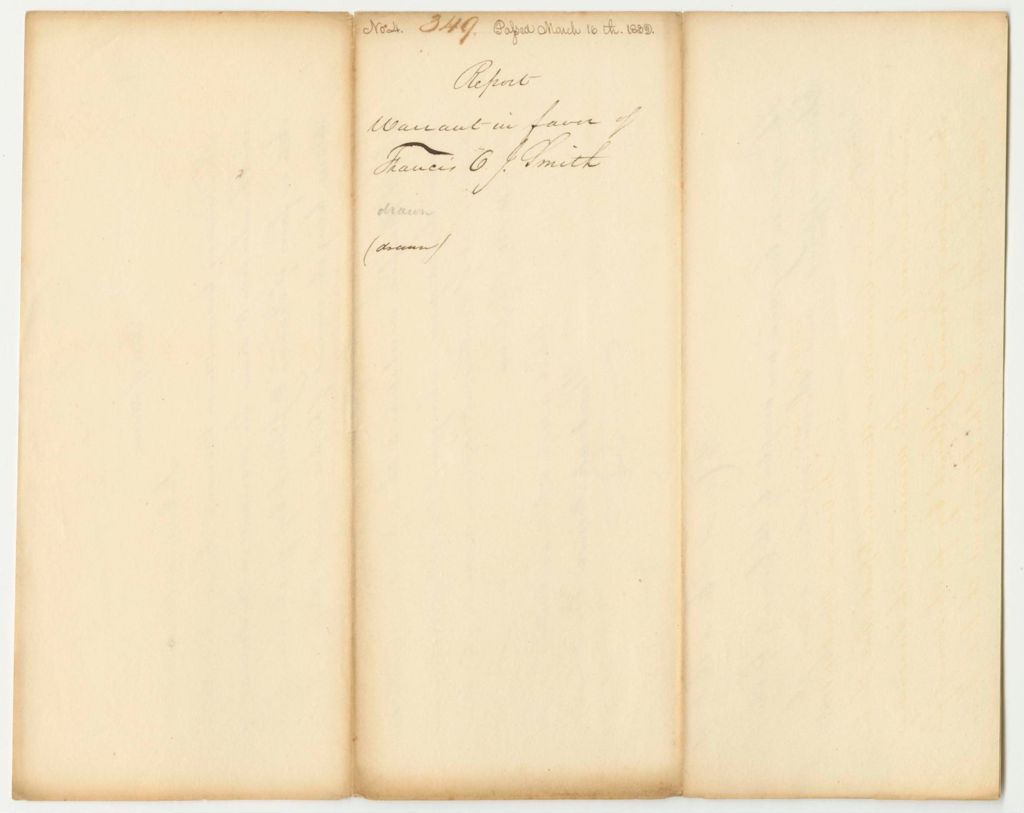 No 4. 349. Passed March 16 th. 1832.
Report
Warrant in favor of
Francis O. J. Smith
drawn
(drawn)